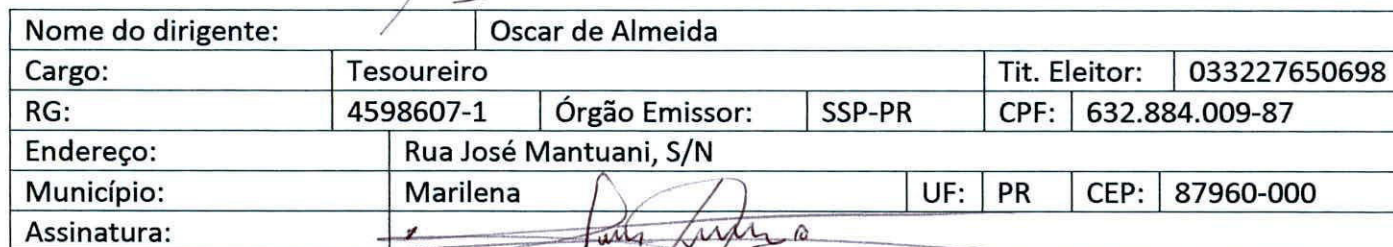 Nome do dirigente: Oscar de Almeida
Cargo: Tesoureiro Tit. Eleitor: 033227650698
RG: 4598607-1 Órgão Emissor: SSP-PR CPF: 632.884.009-87
Endereço: Rua José Mantuani, S/N
Município: Marilena UF: PR CEP: 87960-000
Assinatura: